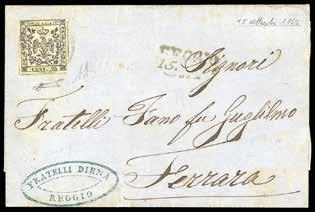 15 settembre 1852
CENT. 25
REGGIO
15
Signori
Fratelli Fano fu Guglielmo
Ferrara
FRATELLI DIENA
REGGIO